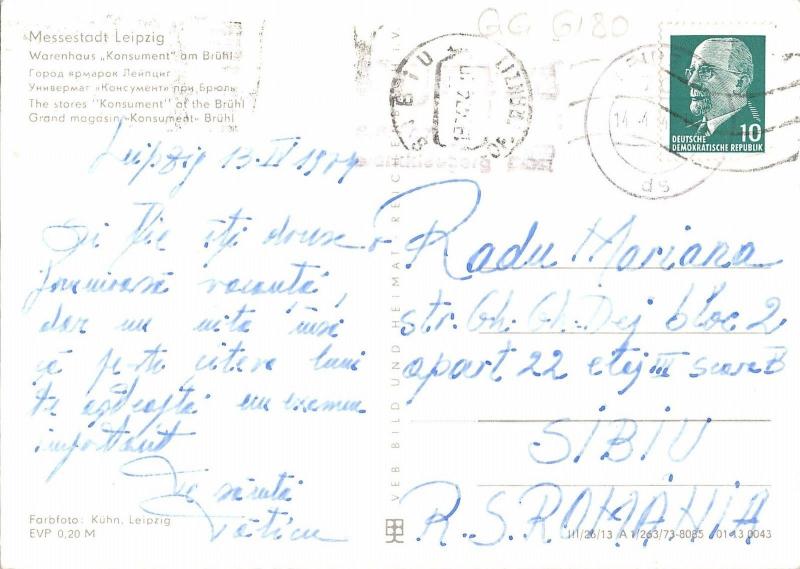 Messestadt Leipzig
Warenhaus „Konsument“ am Brühl
Город ярмарок Лейпциг
Универмаг «Консумент» при Брюль
The stores "Konsument" at the Brühl
Grand magasin «Konsument» Brühl
GG 6180
SIBIU
DEUTSCHE
DEMOKRATISCHE REPUBLIK
10
Leipzig 13
Și ție îți doresc o
frumoasă vacanță,
dar nu uita însă
că peste câteva luni
te așteaptă un examen
important
Te sărută
Tăticu
Radu Mariana
str. Gh. Gh. Dej bloc 2
apart 22 etaj III scara B
SIBIU
R. S. ROMÂNIA
VEB BILD UND HEIMAT REICHENBACH
Farbfoto: Kühn, Leipzig
EVP 0,20 M
III/26/13 A 1/263/73-8085 01 13 0043